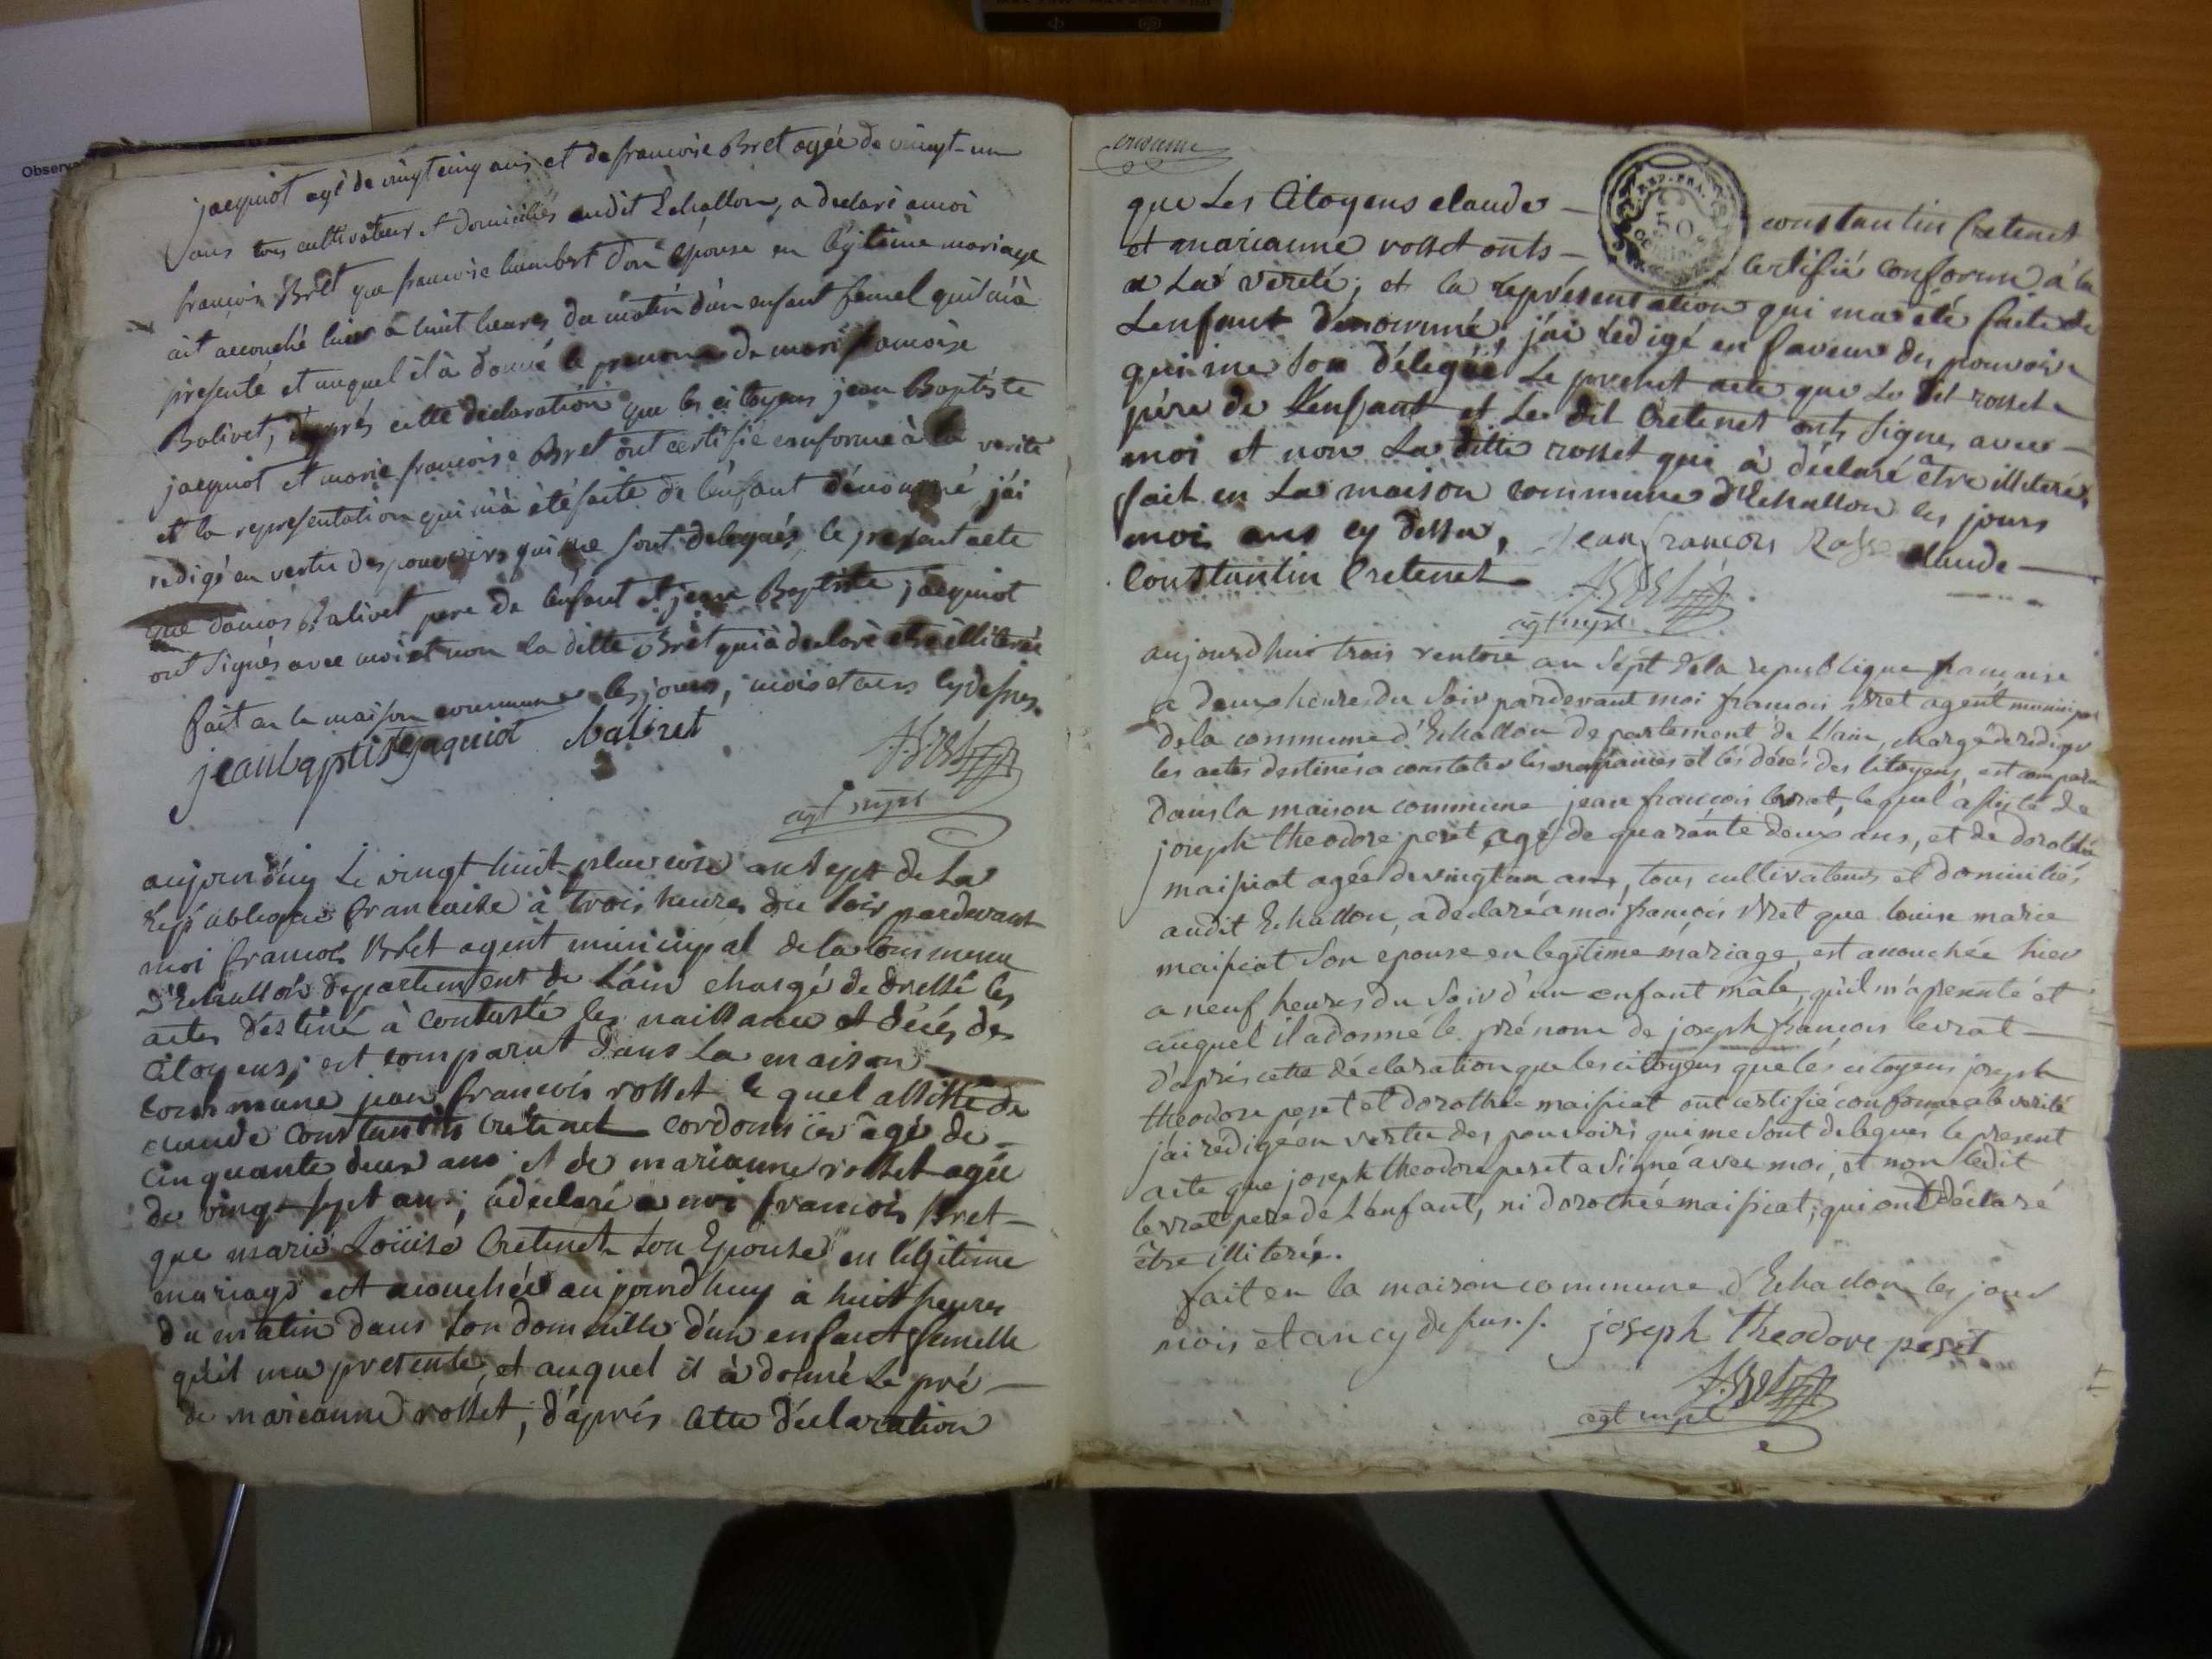 Observa
jacquiot agé de vingt cinq ans et de francoise Bret agée de vingt-un
ans tous cultivateur et domiciliés audit Echallon, a declaré a moi
francois Bret que francoise humbert son épouse en légitime mariage
ait accouché hier à huit heures du matin d'un enfant femel quil m'à
presenté et auquel il à donné le prenom de marie francoise
Balivet, d'aprés cette déclaration que les citoyens jean Baptiste
jacquiot et marie francoise Bret ont certifié conforme à la verité
et la representation qui m'à été faite de l'enfant dénommé j'ai
redigé en vertu des pouvoirs qui me sont delegués le present acte
que Balivet pere de l'enfant et jean Baptiste jacquiot
ont signés avec moi et non la ditte Bret qui à declaré etre illiterée
fait en la maison commune les jours, mois et ans cy dessus.
jean baptiste jaquiot balivet
F. Bret
agt mpal
aujourd'huy le vingt huit pluviose an sept de La
République francaise à trois heures du soir pardevant
moi francois Bret agent municipal de la Commune
D'Echallon departement de L'ain chargé de dressé les
actes déstiné à constaté les naissance et décés des
Citoyens, est comparut dans La maison
Commune jean francois rosset le quel assisté de
claude Constantin Crétenet cordonnier âgé de
cinquante deux ans et de marianne rosset agée
de vingt sept ans, à declaré a moi francois Bret
que marie Loüise Cretenet son Epouse en légitime
mariage est acouchée aujourdhuy à huit heures
du matin dans son domicille d'un enfant femelle
qu'il ma presenté, et auquel il à donné Le pré
de marianne rosset, d'aprés cette déclaration
que Les Citoyens claude constantin Cretenet
et marianne rosset onts certifié conforme à la
a La verité; et la représentation qui ma été faite de
Lenfant dénommé, j'ai redigé en faveur des pouvoirs
qui me son délegué Le present acte que Le dit rosset
pére de L'enfant et Le dit Cretenet onts signes avec
moi et non La ditte rosset qui à déclaré être illiteré,
fait en La maison commune d'Echallon les jours
moi ans cy dessu, Jean francois Rosset claude
Constantin Cretenet
F. Bret
agt mpal
aujourdhui trois ventose an sept de la republique française
a deux heures du soir pardevant moi francois Bret agent municipal
de la commune d'Echallon departement de L'ain, chargé de rediger
les actes destinés a constater les naissances et les décés des citoyens, est comparu
dans la maison commune jean françois levrat, lequel assisté de
joseph theodore peset agé de quarante deux ans, et de dorothée
maissiat agée de vingt un ans, tous cultivateurs et domiciliés
audit Echallon, a declaré a moi françois Bret que louise marie
maissiat son epouse en legitime mariage, est acouchée hier
a neuf heures du soir d'un enfant mâle, qu'il m'a presenté et
auquel il a donné le prénom de joseph françois levrat
d'aprés cette déclaration que les citoyens que les citoyens joseph
theodore peset et dorothée maissiat ont certifié conforme a la verité
j'ai rédigé en vertu des pouvoirs qui me sont delegués le present
acte que joseph theodore peset a signé avec moi, et non ledit
levrat pere de L'enfant, ni dorothée maissiat, qui ont déclaré
être illiterés.
fait en la maison commune d'Echallon les jour
mois et an cy dessus./. joseph theodore peset
F. Bret
agt mpal